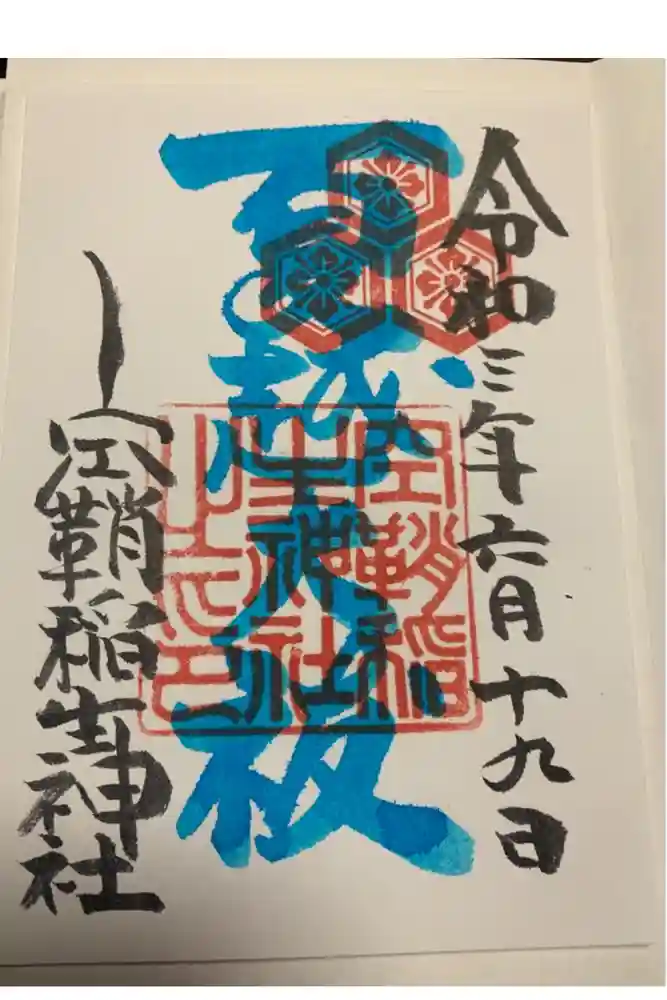 令和三年六月十九日
夏越大祓
空鞘稲
生神社
之印
空鞘稲生神社